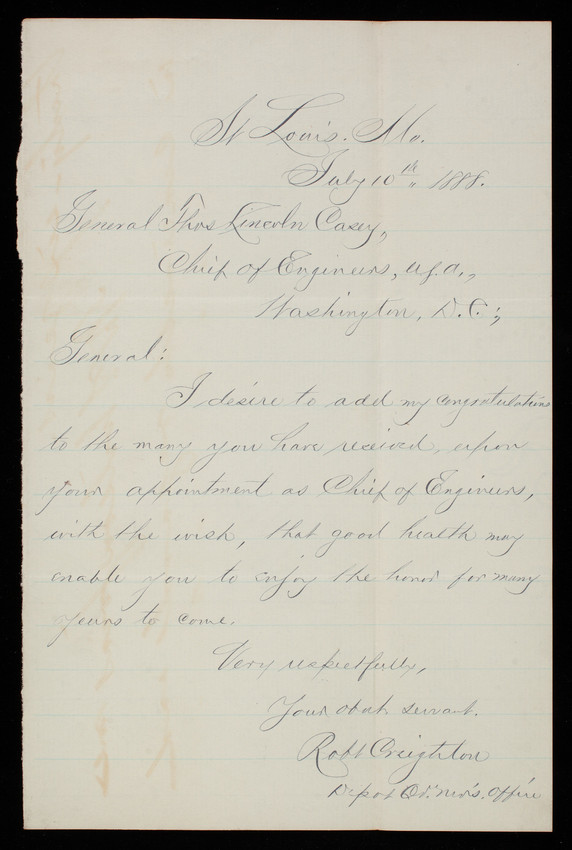 St Louis. Mo.
July 10th 1888.
General Thos Lincoln Casey,
Chief of Engineers, U.S.A.,
Washington, D.C.,
General:
I desire to add my congratulations
to the many you have received, upon
your appointment as Chief of Engineers,
with the wish, that good health may
enable you to enjoy the honor for many
years to come.
Very respectfully,
Your obdt servant.
Robt Creighton
Depot Qr. Mrs. Office